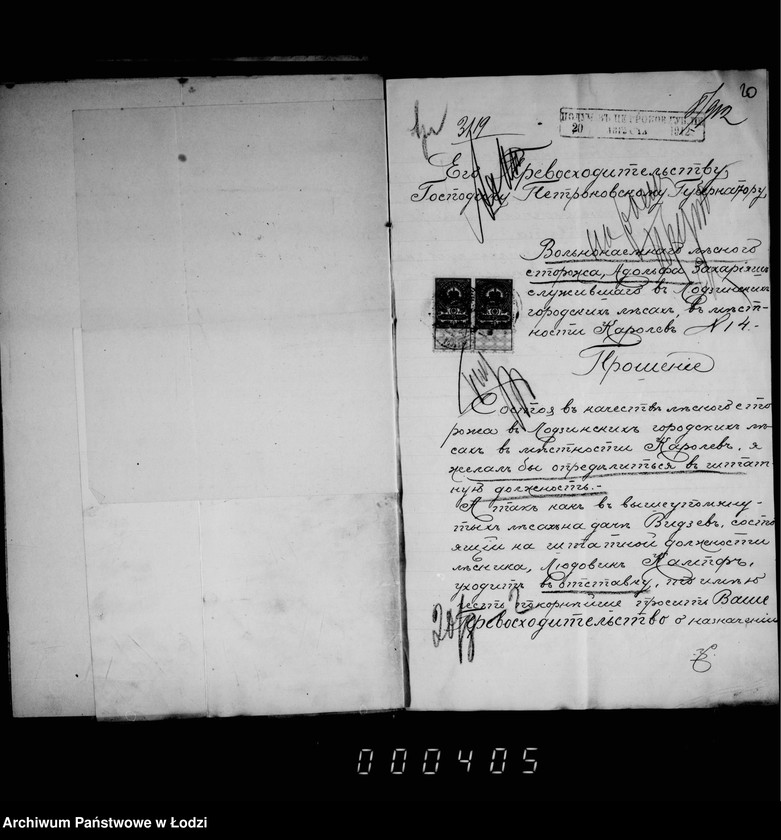 20
3119
ПОЛУЧ. ВЪ ПЕТРОКОВ. ГУБ. ПР.
20 АВГУСТА 1912
Его Превосходительству,
Господину Петроковскому Губернатору,
Вольнонаемнаго лѣсного
сторожа, Адольфа Захаріашъ
служившаго въ Лодзинскихъ
городскихъ лѣсахъ, въ мѣст-
ности Каролевъ N 14.-
Прошеніе
Состоя въ качествѣ лѣсного сто
рожа въ Лодзинскихъ городскихъ лѣ-
сахъ въ мѣстности Каролевъ, я
желалъ бы опредѣлиться въ штат-
ную должность.-
А такъ какъ въ вышеупомяну-
тыхъ лѣсахъ на дачѣ Видзевъ, состо
ящій на штатной должности
лѣсника, Людовикъ Кампфъ,
уходитъ въ отставку, то имѣю
честь покорнѣйше просить Ваше
Превосходительство о назначеніи
000405
Archiwum Państwowe w Łodzi